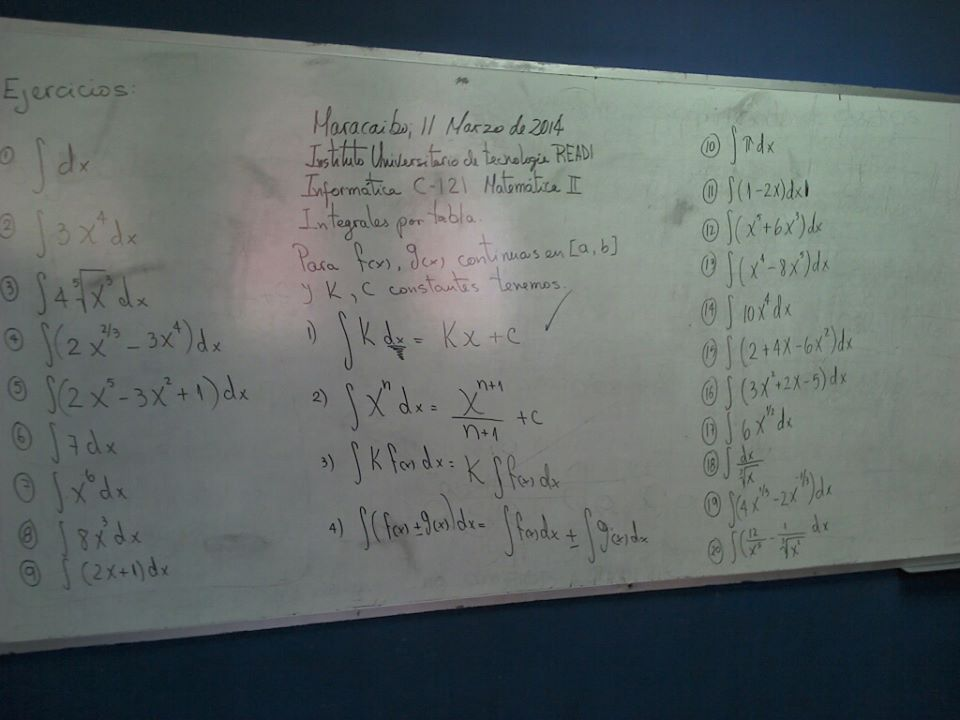 Ejercicios:
① ∫ dx
② ∫ 3x⁴ dx
③ ∫ 4 ⁵√x³ dx
④ ∫(2x^{2/3} − 3x⁴) dx
⑤ ∫(2x⁵ − 3x² + 1) dx
⑥ ∫ 7 dx
⑦ ∫ x⁶ dx
⑧ ∫ 8x³ dx
⑨ ∫ (2x+1) dx
Maracaibo, 11 Marzo de 2014
Instituto Universitario de tecnología READI
Informática C-121 Matemática II
Integrales por tabla.
Para f(x), g(x) continuas en [a, b]
y K, C constantes tenemos.
1) ∫ K dx = Kx + C
2) ∫ xⁿ dx = x^{n+1}/(n+1) + C
3) ∫ K f(x) dx = K ∫ f(x) dx
4) ∫ (f(x) ± g(x)) dx = ∫ f(x) dx ± ∫ g(x) dx
⑩ ∫ π dx
⑪ ∫ (1 − 2x) dx
⑫ ∫ (x⁵ + 6x³) dx
⑬ ∫ (x⁴ − 8x⁵) dx
⑭ ∫ 10x⁴ dx
⑮ ∫ (2 + 4x − 6x²) dx
⑯ ∫ (3x² + 2x − 5) dx
⑰ ∫ 6x^{1/2} dx
⑱ ∫ dx/
⑲ ∫ (4x^{1/3} − 2x^{-1/3}) dx
⑳ ∫ (12/x³ − dx